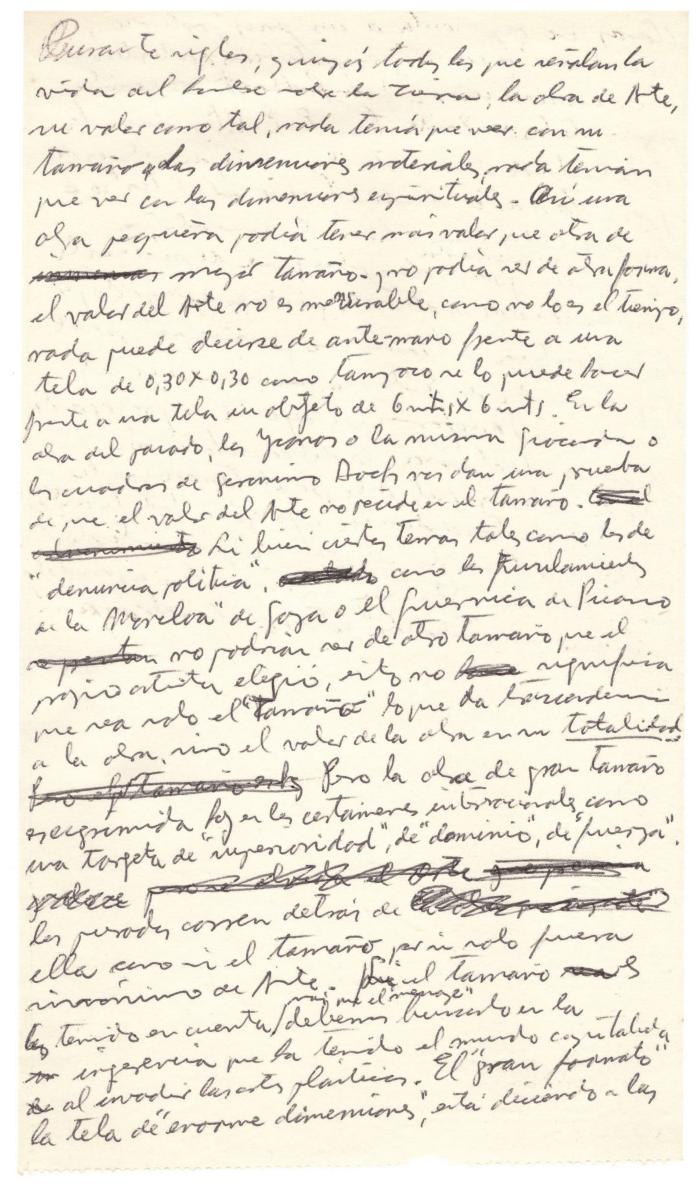 Durante siglos, quizás todos los que señalan la
vida del hombre sobre la Tierra, la obra de Arte,
su valor como tal, nada tenía que veer con su
tamaño y las dimensiones materiales nada tenían
que ver con las dimensiones espirituales. Así una
obra pequeña podía tener más valor que otra de
mayor tamaño. y no podía ser de otra forma,
el valor del Arte no es mensurable, como no lo es el tiempo,
nada puede decirse de antemano frente a una
tela de 0,30 X 0,30 como tampoco se lo puede hacer
frente a una tela u objeto de 6 mts, X 6 mts. En la
obra del pasado, los Iconos o la misma Gioconda o
los cuadros de Geronimo Bosch nos dan una prueba
de que el valor del Arte no recide en el tamaño.
Si bien ciertos temas tales como los de
"denuncia politica", como los Fusilamientos
de la Moncloa" de Goya o el Guernica de Picasso
no podrían ser de otro tamaño que el
propio artista eligió, esto no significa
que sea solo el "tamaño" lo que da trascendencia
a la obra, sino el valor de la obra en su totalidad
Pero la obra de gran tamaño
es esgrimida hoy en los certámenes internacionales como
una targeta de "superioridad", de "dominio", de "fuerza".
los jurados corren detrás de
ella como si el tamaño por si solo fuera
sinónimo de Arte. Si el tamaño es
hoy tenido en cuenta más que el "mensaje" debemos buscarlo en la
ingerencia que ha tenido el mundo capitalista
al invadir las artes plásticas. El "gran formato"
la tela de "enorme dimensiones", está diciendo a las